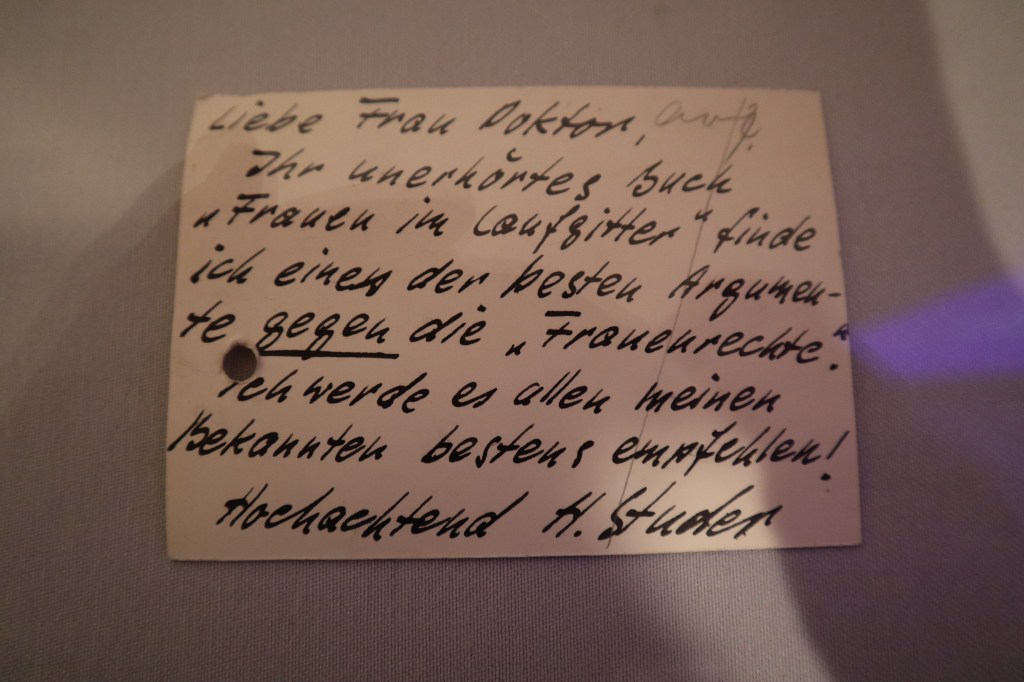 Liebe Frau Doktor,
Ihr unerhörtes Buch
„Frauen im Laufgitter“ finde
ich eines der besten Argumen-
te gegen die „Frauenrechte“.
Ich werde es allen meinen
Bekannten bestens empfehlen!
Hochachtend H. Studer